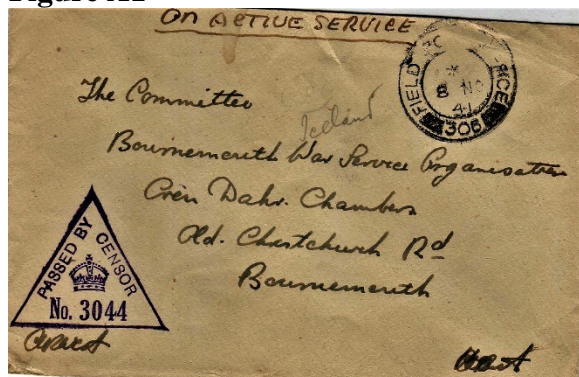 ON ACTIVE SERVICE
FIELD POST OFFICE
8 NO
41
306
The Committee
Iceland
Bournemouth War Service Organisation
Chambers
Old. Christchurch Rd
Bournemouth
PASSED BY CENSOR
No. 3044